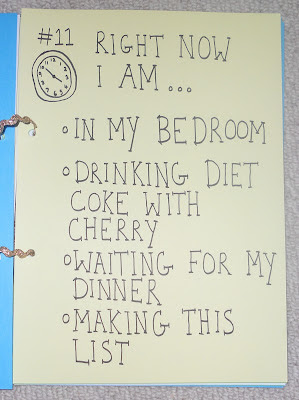 #11 RIGHT NOW
I AM...
IN MY BEDROOM
DRINKING DIET
COKE WITH
CHERRY
WAITING FOR MY
DINNER
MAKING THIS
LIST